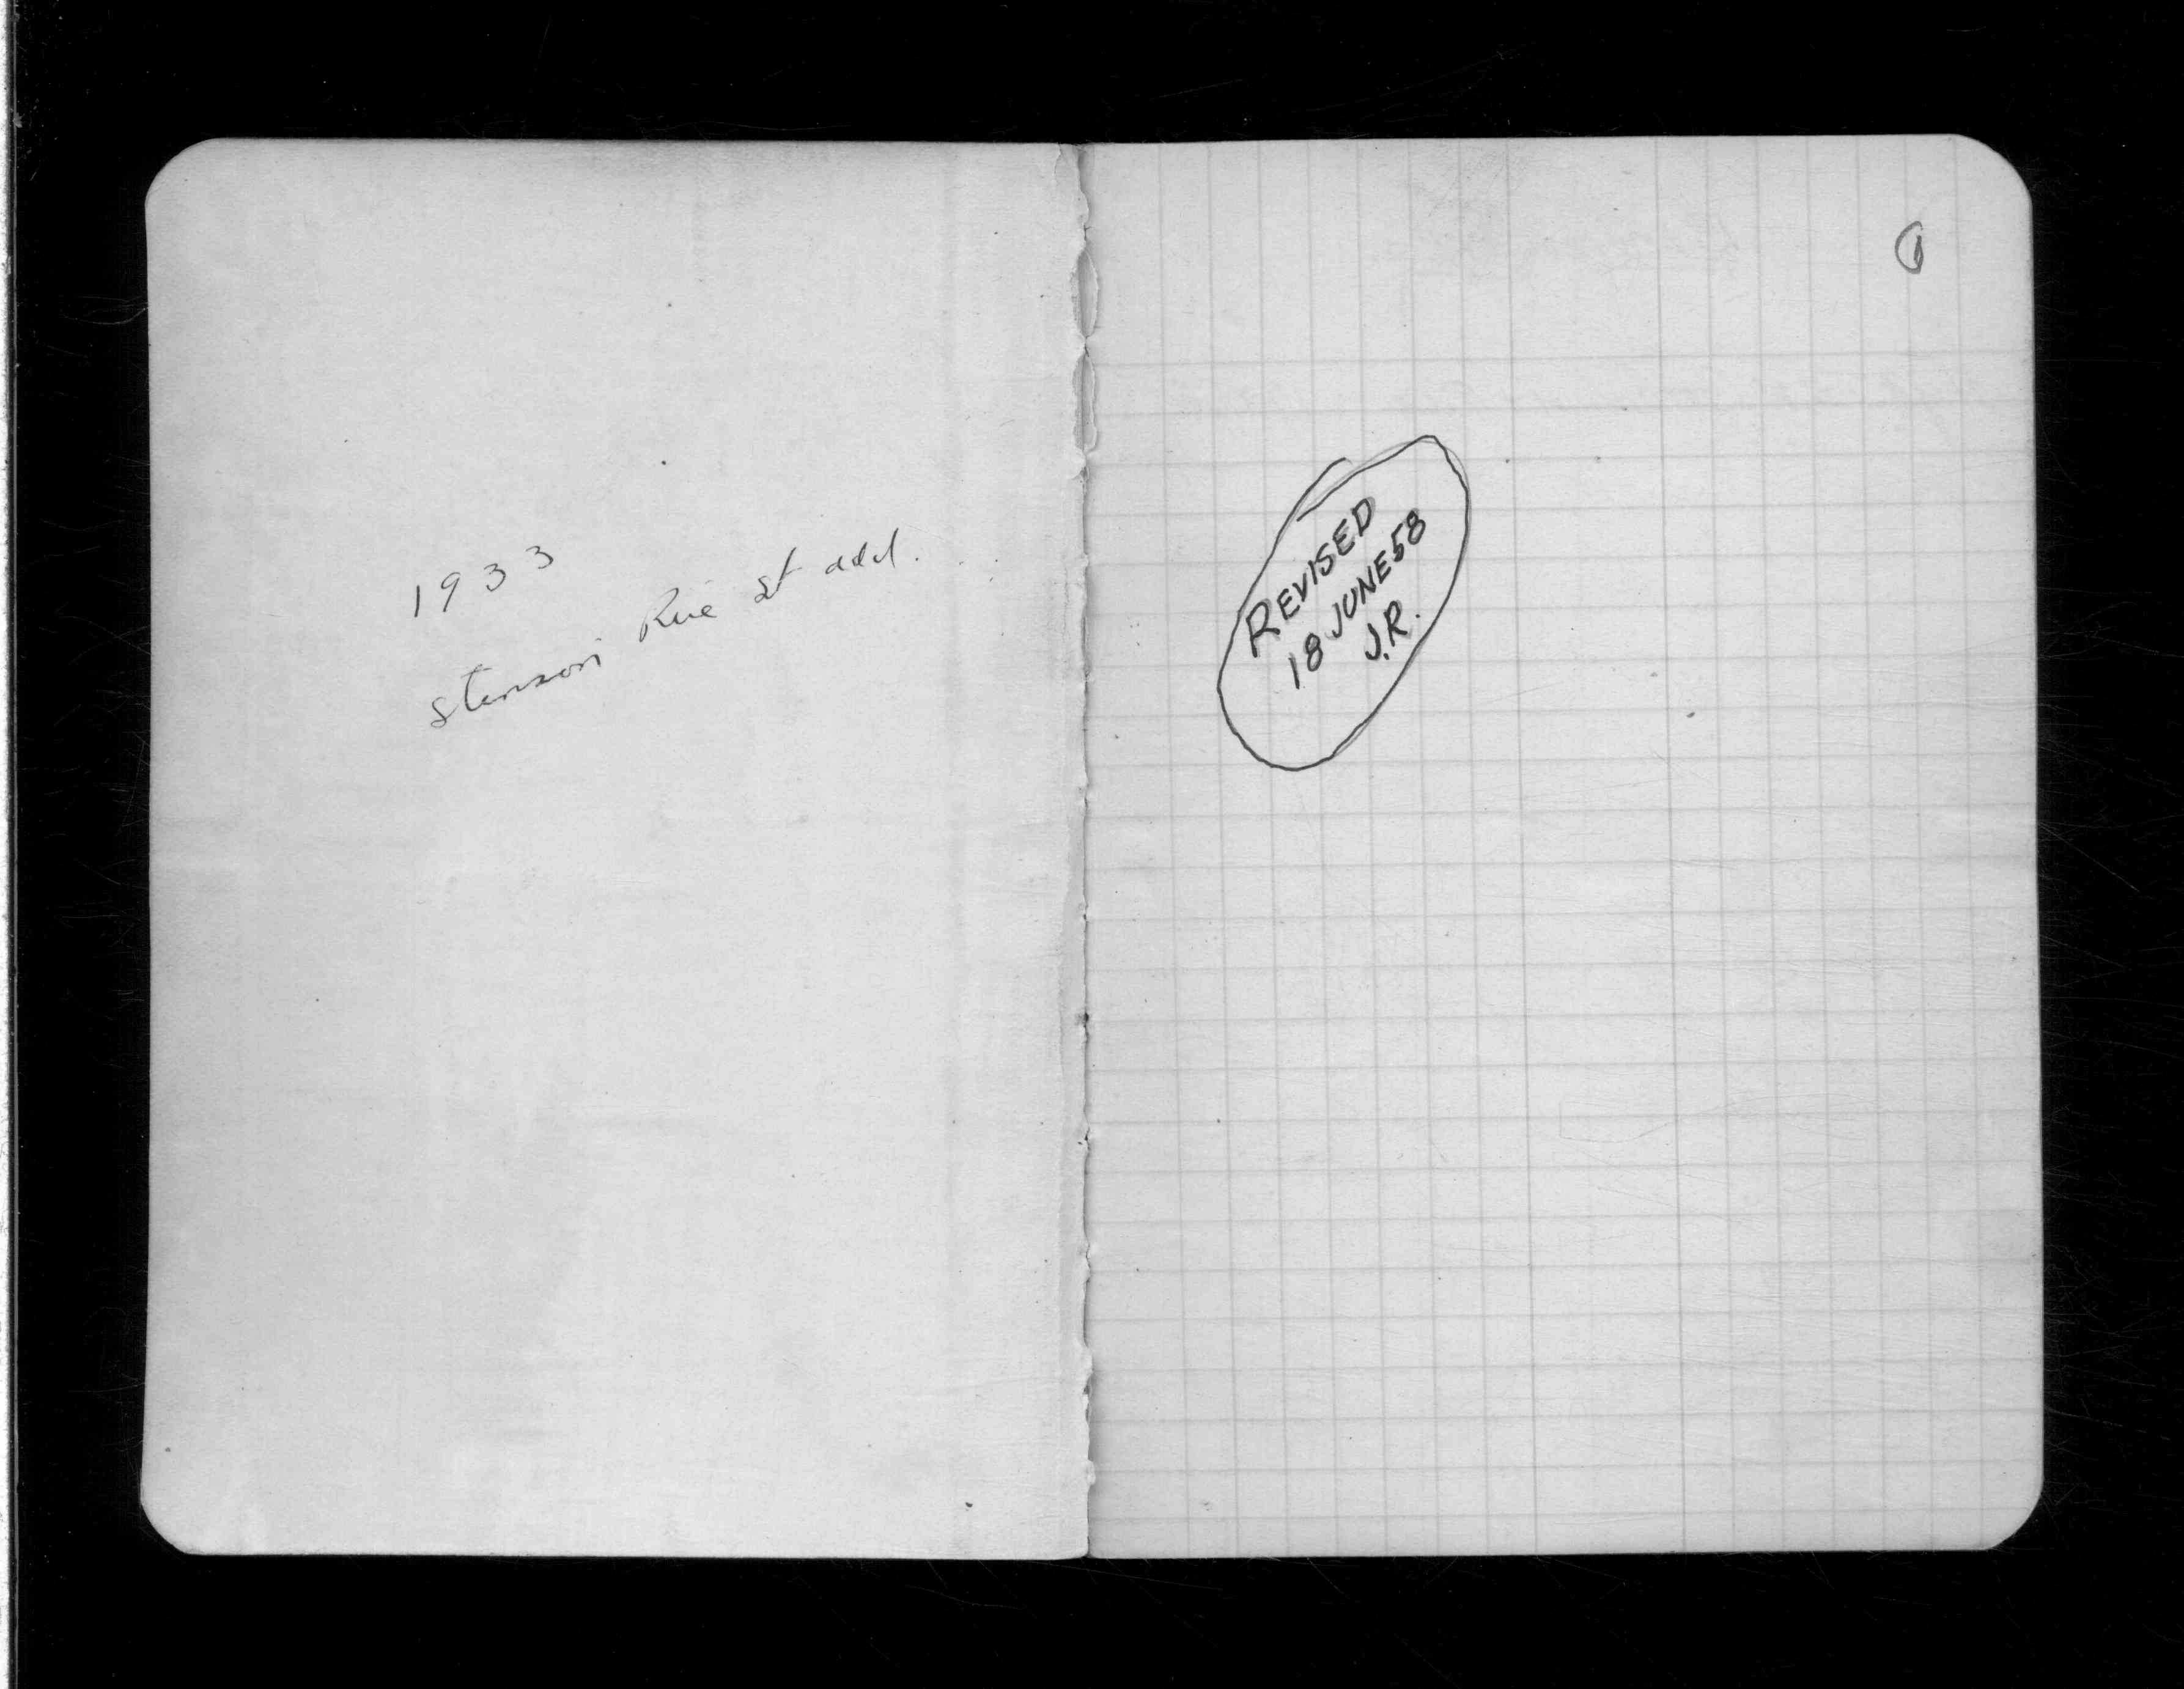 1933
Rue St add.
1
REVISED
18 JUNE 58
J.R.